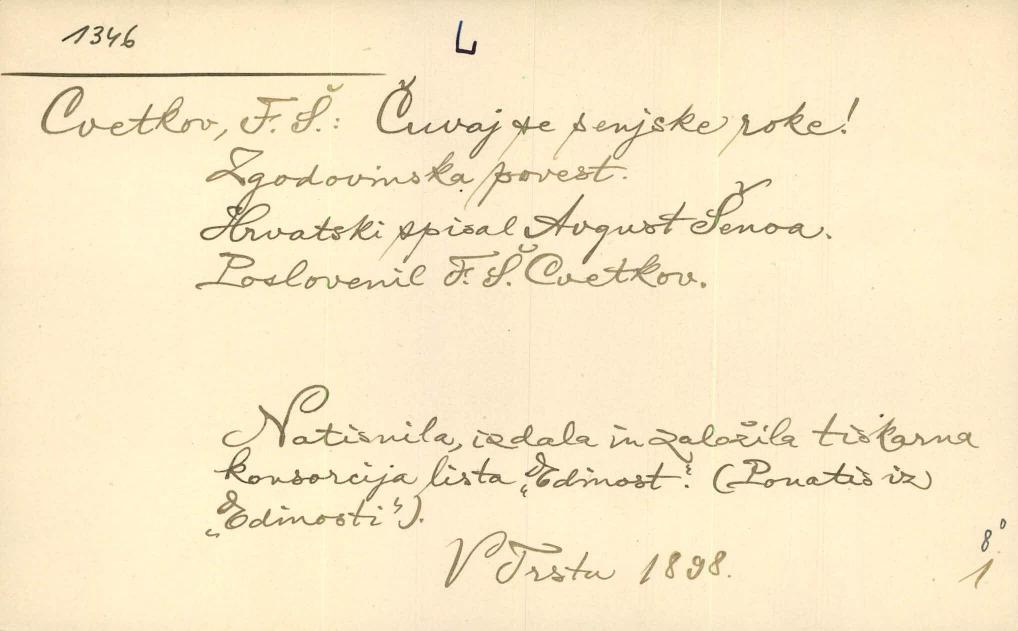 1346
L
Cvetkov, F. Š.: Čuvaj se senjske roke!
Zgodovinska povest.
Hrvatski spisal Avgust Šenoa.
Poslovenil F. Š. Cvetkov.
Natisnila, izdala in založila tiskarna
konsorcija lista „Edinost“. (Ponatis iz
„Edinosti“).
V Trstu 1898.
8°
1